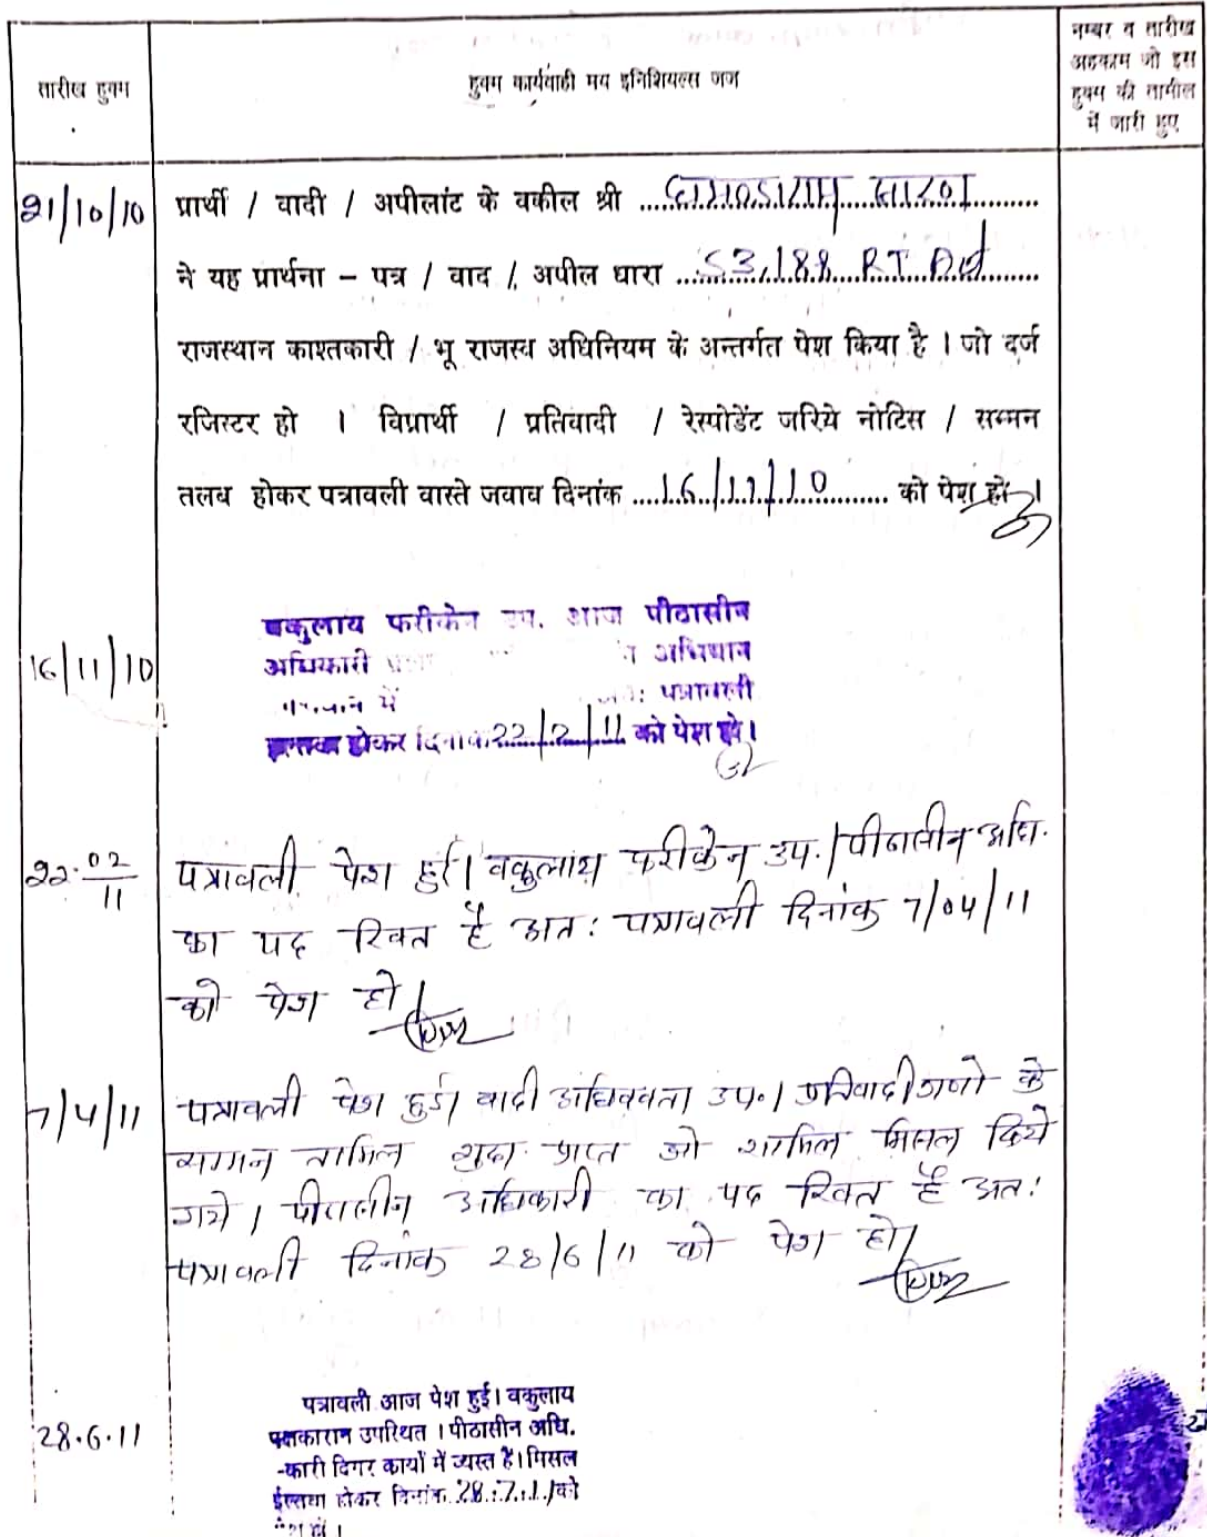 तारीख हुक्म
हुक्म कार्यवाही मय इनिशियल्स जज
नम्बर व तारीख
अहकाम जो इस
हुक्म की तामील
में जारी हुए
21/10/10
प्रार्थी / वादी / अपीलांट के वकील श्री
ने यह प्रार्थना – पत्र / वाद / अपील धारा 53,188 RT Act
राजस्थान काश्तकारी / भू राजस्व अधिनियम के अन्तर्गत पेश किया है । जो दर्ज
रजिस्टर हो । विप्रार्थी / प्रतिवादी / रेस्पोडेंट जरिये नोटिस / सम्मन
तलब होकर पत्रावली वास्ते जवाब दिनांक 16/11/10 को पेश हो ।
16/11/10
वकुलाय फरीकेन उप. आज पीठासीन
अधिकारी अभियान
में पत्रावली
होकर दिनांक 22/2/11 को पेश हो।
22.02/11
पत्रावली पेश हुई। वकुलाय फरीकेन उप.। पीठासीन अधि.
का पद रिक्त है अत: पत्रावली दिनांक 7/04/11
को पेश हो।
7/4/11
पत्रावली पेश हुई। वादी अधिवक्ता उप.। प्रतिवादीगणो के
सम्मन तामिल शुदा प्राप्त जो शामिल मिसल किये
गये। पीठासीन अधिकारी का पद रिक्त है अत:
पत्रावली दिनांक 28/6/11 को पेश हो।
28.6.11
पत्रावली आज पेश हुई। वकुलाय
पक्षकारान उपस्थित । पीठासीन अधि.
-कारी दिगर कार्यो में व्यस्त है। मिसल
होकर दिनांक 28.7.11 को